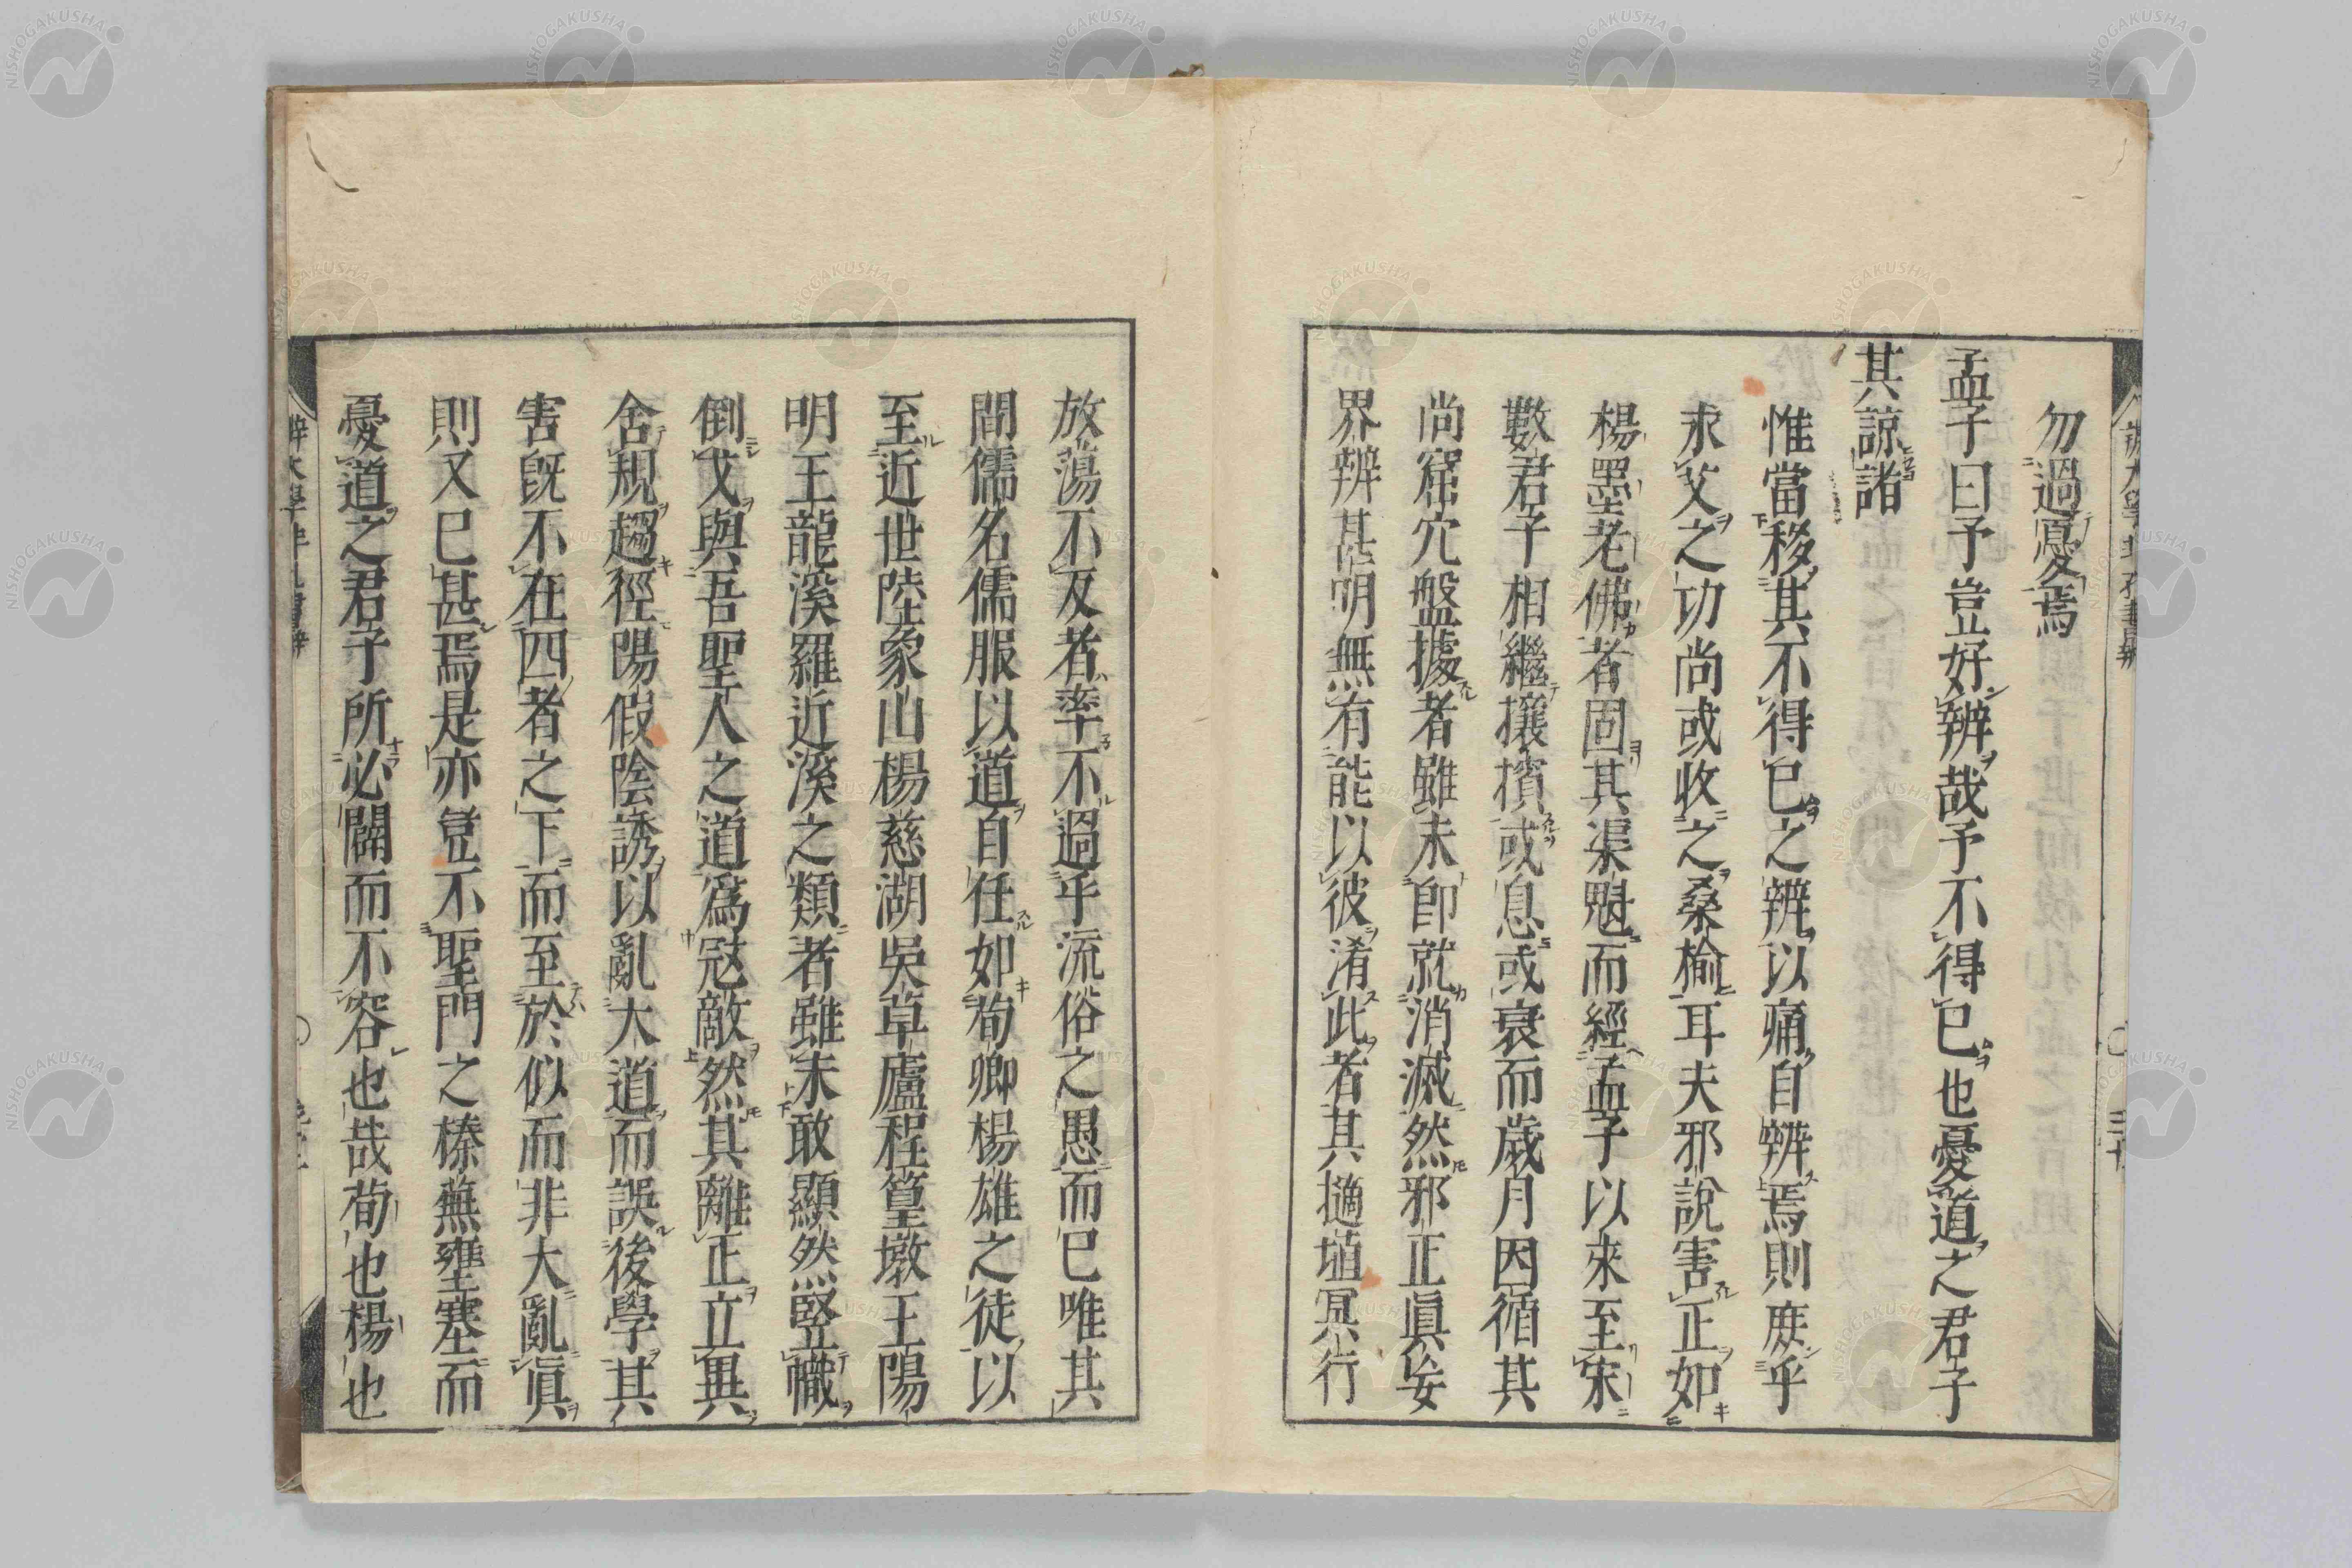 勿過憂焉
孟子曰予豈好辨哉予不得已也憂道之君子
其諒諸
惟當移其不得已之辨以痛自辨焉則庶乎
求艾之功尚或收之桑榆耳夫邪說害正如
楊墨老佛者固其渠魁而經孟子以來至宋
數君子相繼攘擯或息或衰而歲月因循其
尚窟穴盤據者雖未卽就消滅然邪正眞妄
界辨甚明無有能以彼淆此者其擿埴冥行
放蕩不反者率不過乎流俗之愚而已唯其
間儒名儒服以道自任如荀卿楊雄之徒以
至近世陸象山楊慈湖吳草廬程篁墩王陽
明王龍溪羅近溪之類者雖未敢顯然竪幟
倒戈與吾聖人之道爲冦敵然其離正立異
舍規趨徑陽假陰誘以亂大道而誤後學其
害旣不在四者之下而至於似而非大亂眞
則又已甚焉是亦豈不聖門之榛蕪壅塞而
憂道之君子所必闢而不容也哉荀也楊也
NISHOGAKUSHA